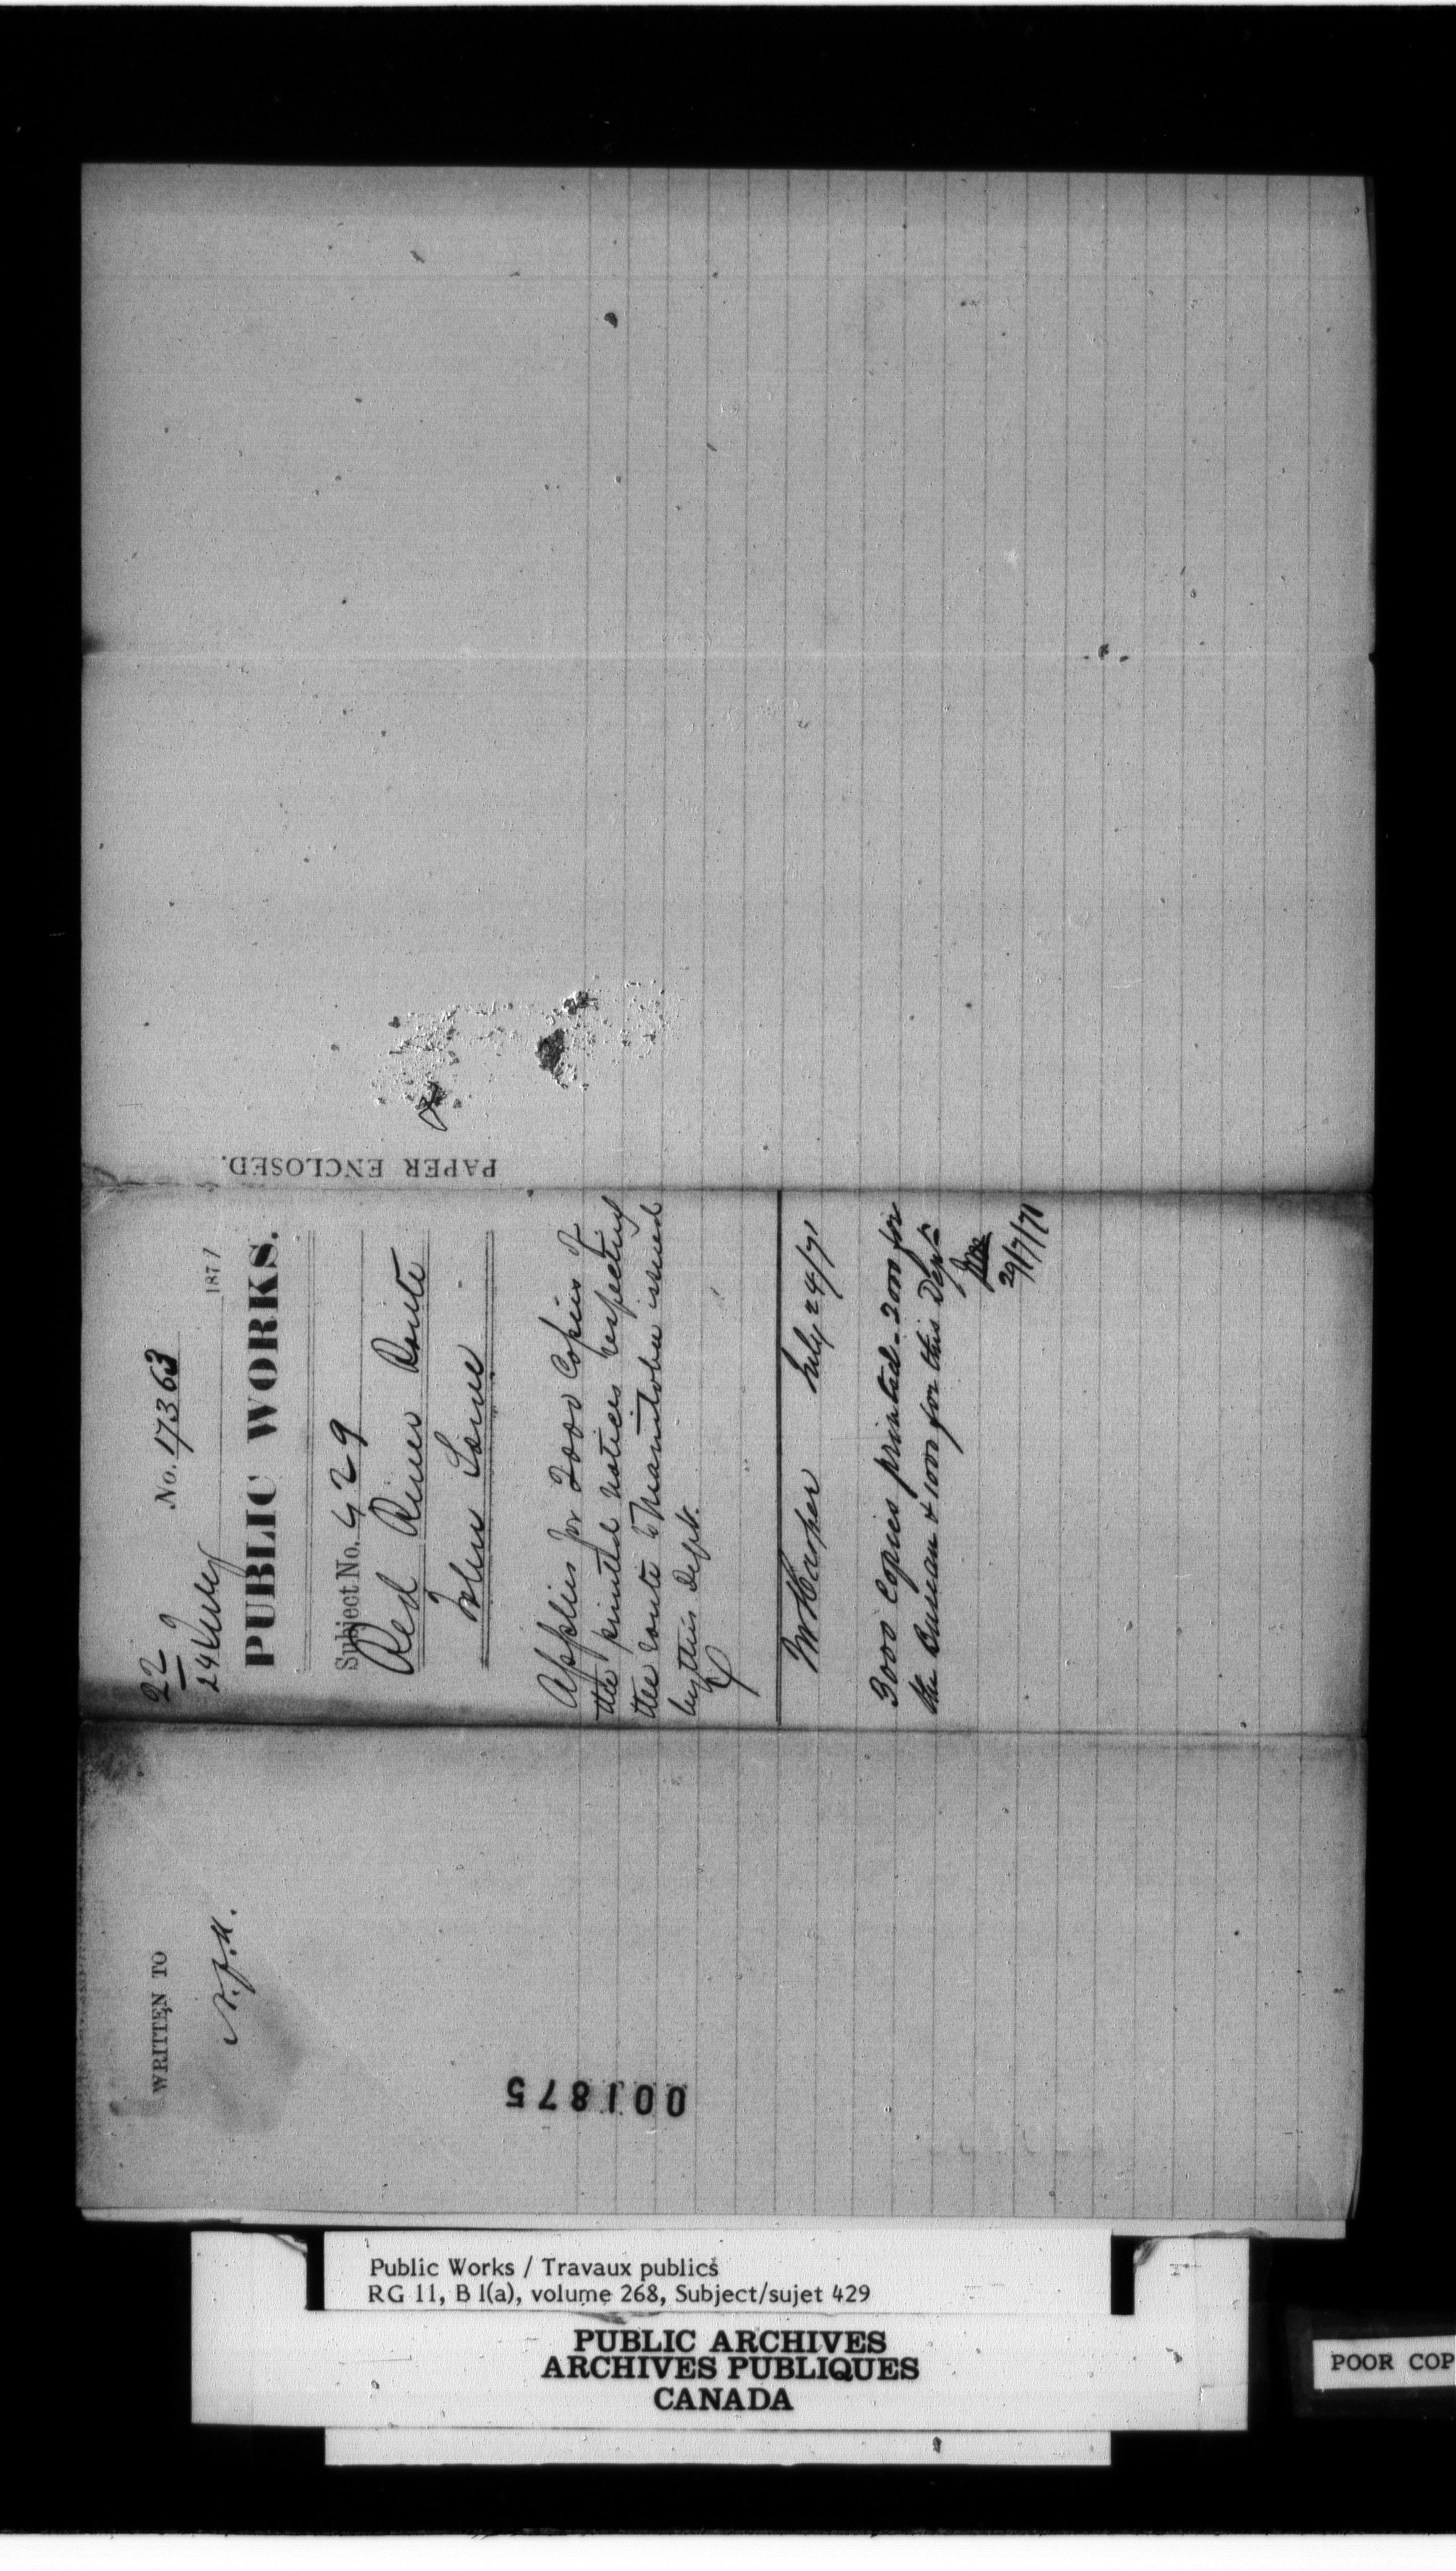 22
24 July
No. 17363
1871
PUBLIC WORKS.
Subject No. 429
Red River Route
John Lowe
Applies for 2000 Copies of
the printed notices respecting
the route to Manitoba issued
by this Dept.
July 24/71
3000 Copies printed - 2000 for
the Bureau & 1000 for this Dept.
29/7/71
PAPER ENCLOSED.
2
WRITTEN TO
001875
Public Works / Travaux publics
RG 11, B 1(a), volume 268, Subject/sujet 429
PUBLIC ARCHIVES
ARCHIVES PUBLIQUES
CANADA
POOR COP